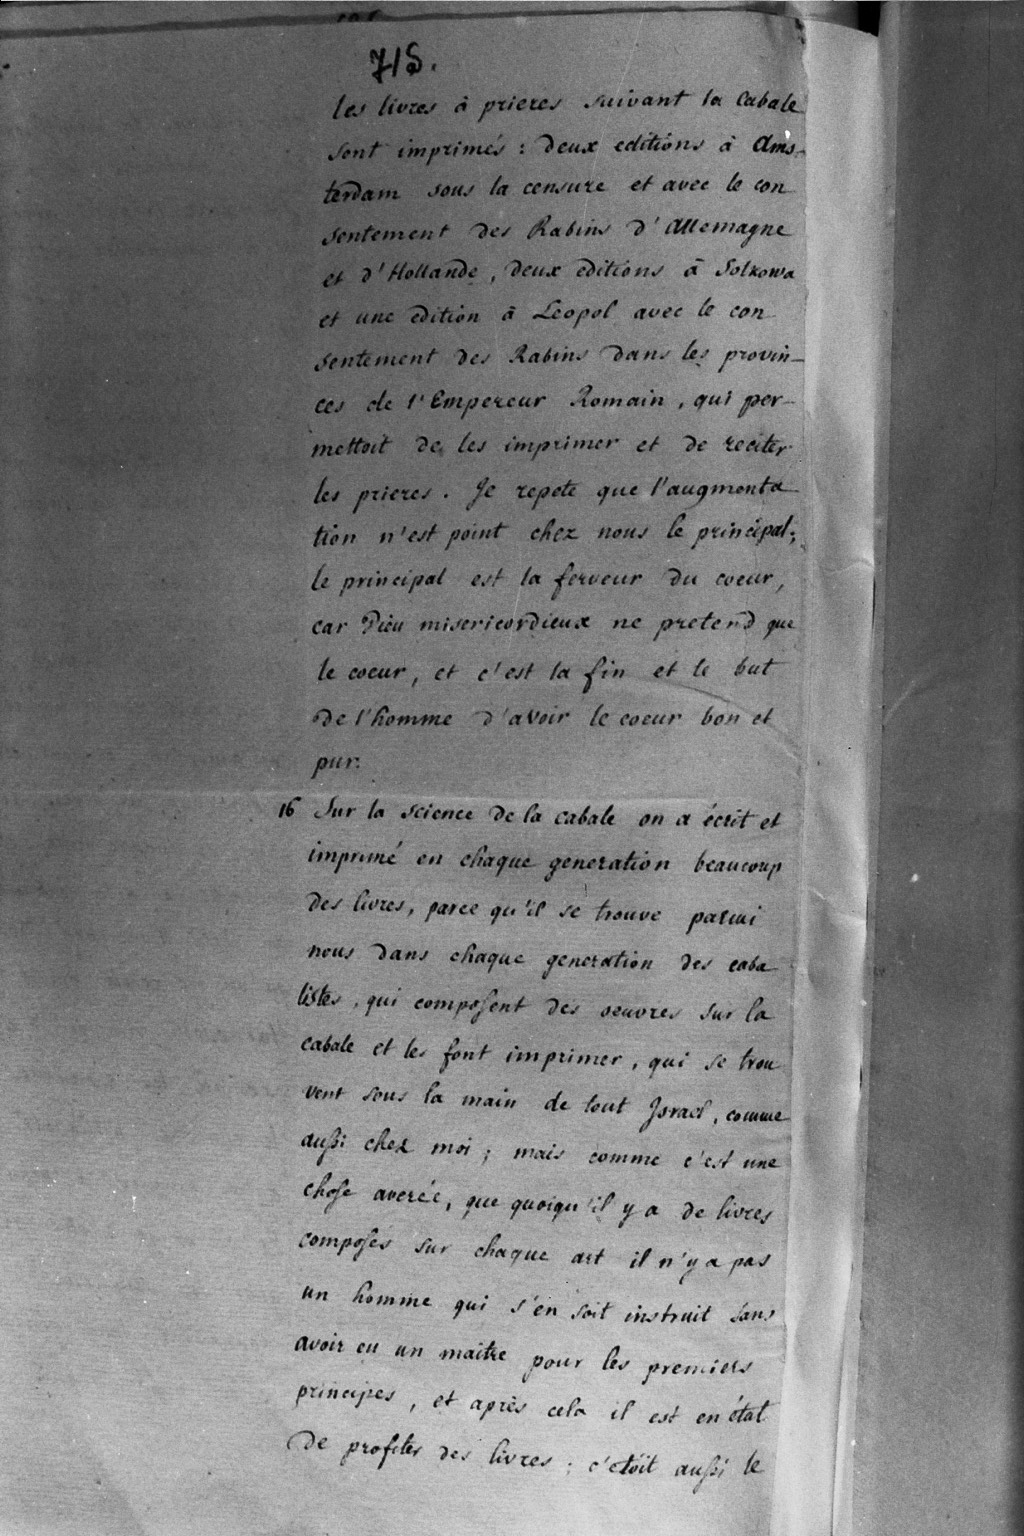 715.
les livres à prieres suivant la Cabale
sont imprimés : deux editions à Ams-
terdam sous la censure et avec le con
sentement des Rabins d'Allemagne
et d'Hollande, deux editions à Solkowa
et une edition à Léopol avec le con
sentement des Rabins dans les provin-
ces de l'Empereur Romain, qui per-
mettoit de les imprimer et de reciter
les prieres. Je repete que l'augmenta
tion n'est point chez nous le principal;
le principal est la ferveur du coeur,
car Dieu misericordieux ne pretend que
le coeur, et c'est la fin et le but
de l'homme d'avoir le coeur bon et
pur.
16 Sur la science de la cabale on a écrit et
imprimé en chaque generation beaucoup
des livres, parce qu'il se trouve parmi
nous dans chaque generation des caba
listes, qui composent des oeuvres sur la
cabale et les font imprimer, qui se trou
vent sous la main de tout Israel, comme
aussi chez moi ; mais comme c'est une
chose averée, que quoiqu'il y a de livres
composés sur chaque art il n'y a pas
un homme qui s'en soit instruit sans
avoir eu un maitre pour les premiers
principes, et après cela il est en état
de profiter des livres ; c'etoit aussi le